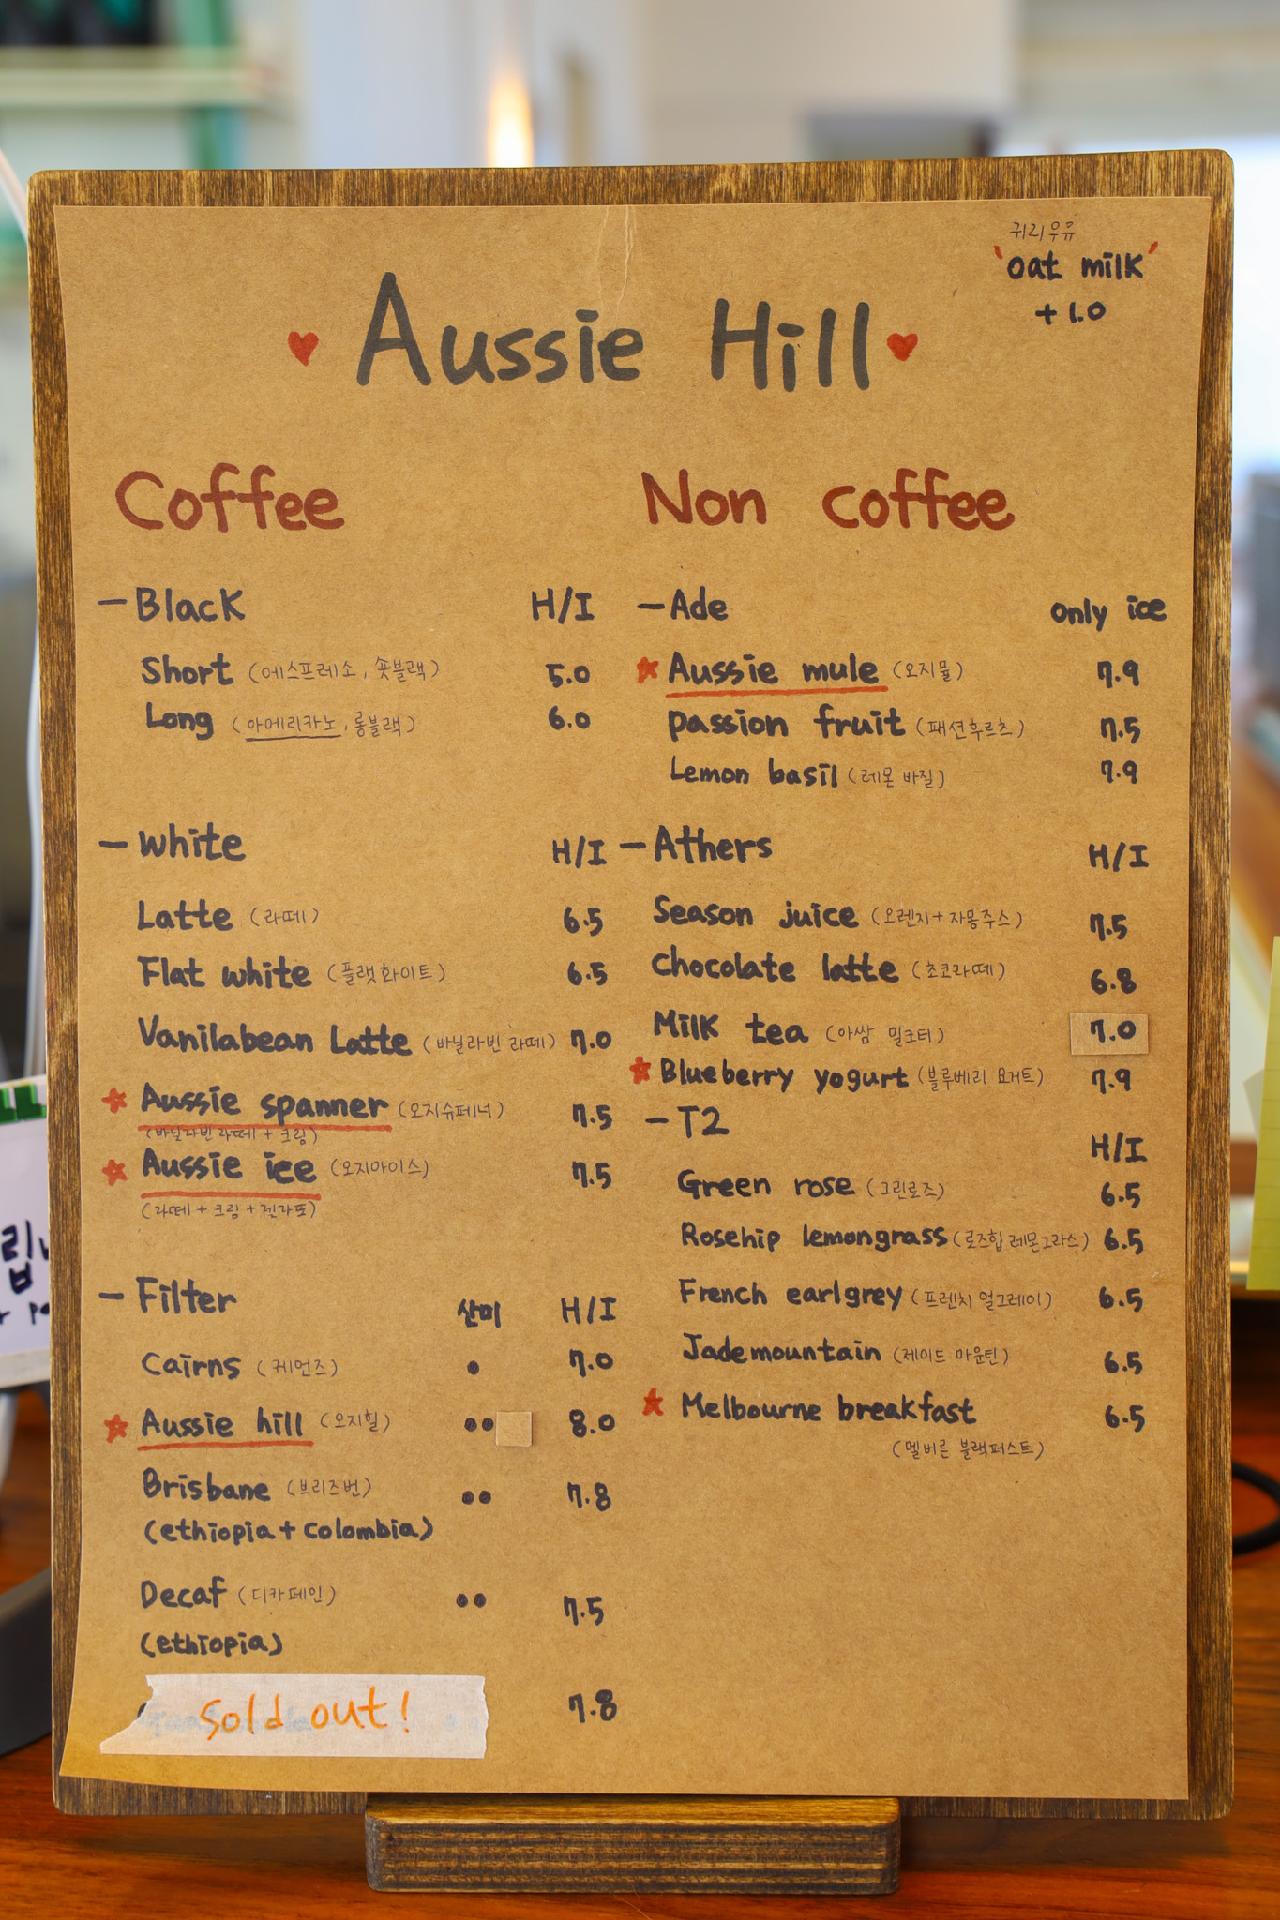 귀리우유
'oat milk'
+1.0
Aussie Hill
Coffee
- Black H/I
Short (에스프레소, 숏블랙) 5.0
Long (아메리카노, 롱블랙) 6.0
- white H/I
Latte (라떼) 6.5
Flat white (플랫화이트) 6.5
Vanilabean Latte (바닐라빈 라떼) 7.0
Aussie spanner (오지슈페너) 7.5
(바닐라빈라떼 + 크림)
Aussie ice (오지아이스) 7.5
(라떼 + 크림 + 젤라또)
- Filter 산미 H/I
Cairns (케언즈) 7.0
Aussie hill (오지힐) 8.0
Brisbane (브리즈번) 7.8
(ethiopia + Colombia)
Decaf (디카페인) 7.5
(ethiopia)
sold out! 7.8
Non coffee
- Ade only ice
Aussie mule (오지뮬) 7.9
passion fruit (패션후르츠) 7.5
Lemon basil (레몬 바질) 7.9
- Athers H/I
Season juice (오렌지 + 자몽주스) 7.5
Chocolate latte (초코라떼) 6.8
Milk tea (아쌈 밀크티) 7.0
Blueberry yogurt (블루베리 요거트) 7.9
- T2 H/I
Green rose (그린로즈) 6.5
Rosehip lemongrass (로즈힙 레몬그라스) 6.5
French earlgrey (프렌치 얼그레이) 6.5
Jademountain (제이드 마운틴) 6.5
Melbourne breakfast 6.5
(멜버른 블랙퍼스트)